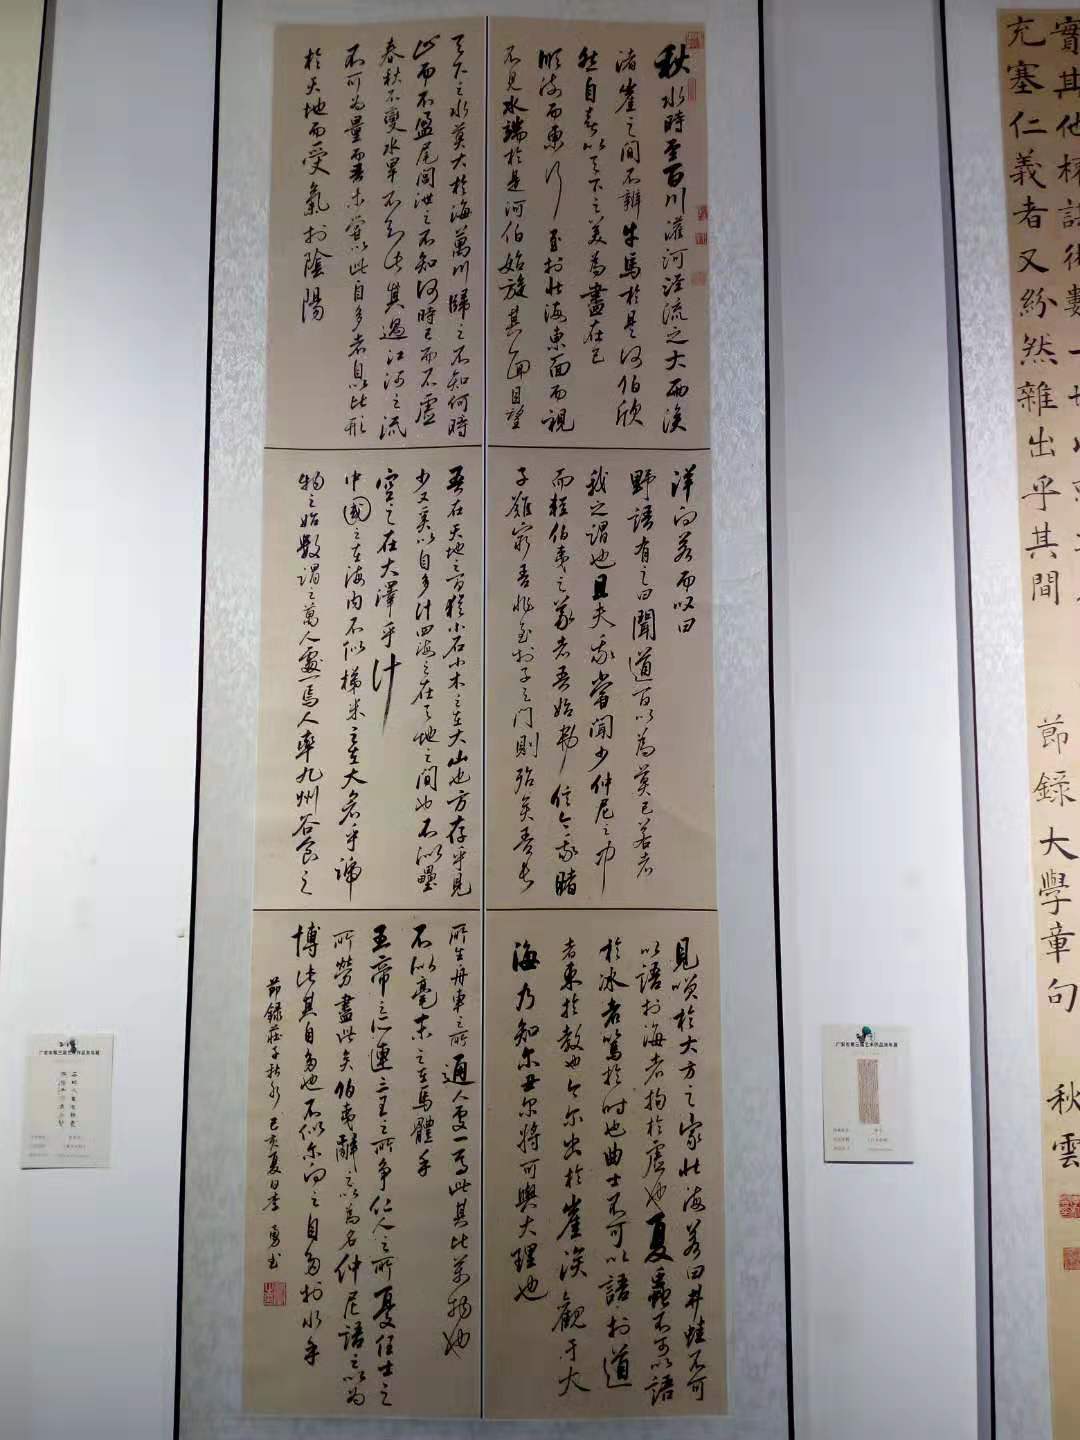 實其他權謀術數一
充塞仁義者又紛然雜出乎其間
節錄大學章句
秋雲
秋水時至百川灌河涇流之大兩涘
渚崖之間不辨牛馬於是河伯欣
然自喜以天下之美為盡在己
順流而東行至於北海東面而視
不見水端於是河伯始旋其面目望
洋向若而叹曰
野語有之曰聞道百以為莫己若者
我之謂也且夫我嘗聞少仲尼之
而輕伯夷之義者吾始弗信今我睹
子難窮吾非至於子之门則殆矣吾長
見笑於大方之家北海若曰井蛙不可
以語於海者拘於虛也夏蟲不可以語
於冰者篤於时也曲士不可以語於道
者束於教也今尔出於崖涘觀于大
海乃知尔丑尔將可與大理也
天下之水莫大於海萬川歸之不知何時
止而不盈尾闾泄之不知何時已而不虛
春秋不變水旱不知此其過江河之流
不可为量數而吾未嘗以此自多者自以比形
於天地而受氣於陰陽
吾在天地之间猶小石小木之在大山也方存乎見
少又奚以自多计四海之在天地之间也不似礨
空之在大澤乎计
中國之在海内不似稊米之在大倉乎號
物之始數謂之萬人處一焉人卒九州谷食之
所生舟車之所通人處一焉此其比萬物也
不似毫末之在馬體乎
五帝之所連三王之所争仁人之所憂任士之
所勞盡此矣伯夷辭之以為名仲尼語之以为
博此其自多也不似尔向之自多於水乎
節錄莊子秋水己亥夏日李勇书